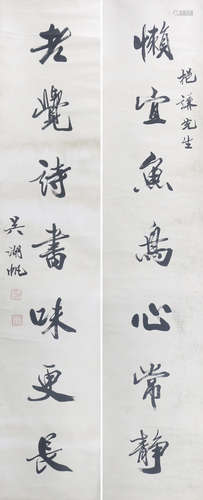 懶宜魚鳥心常靜
挹謙先生
老覺詩書味更長
吳湖帆